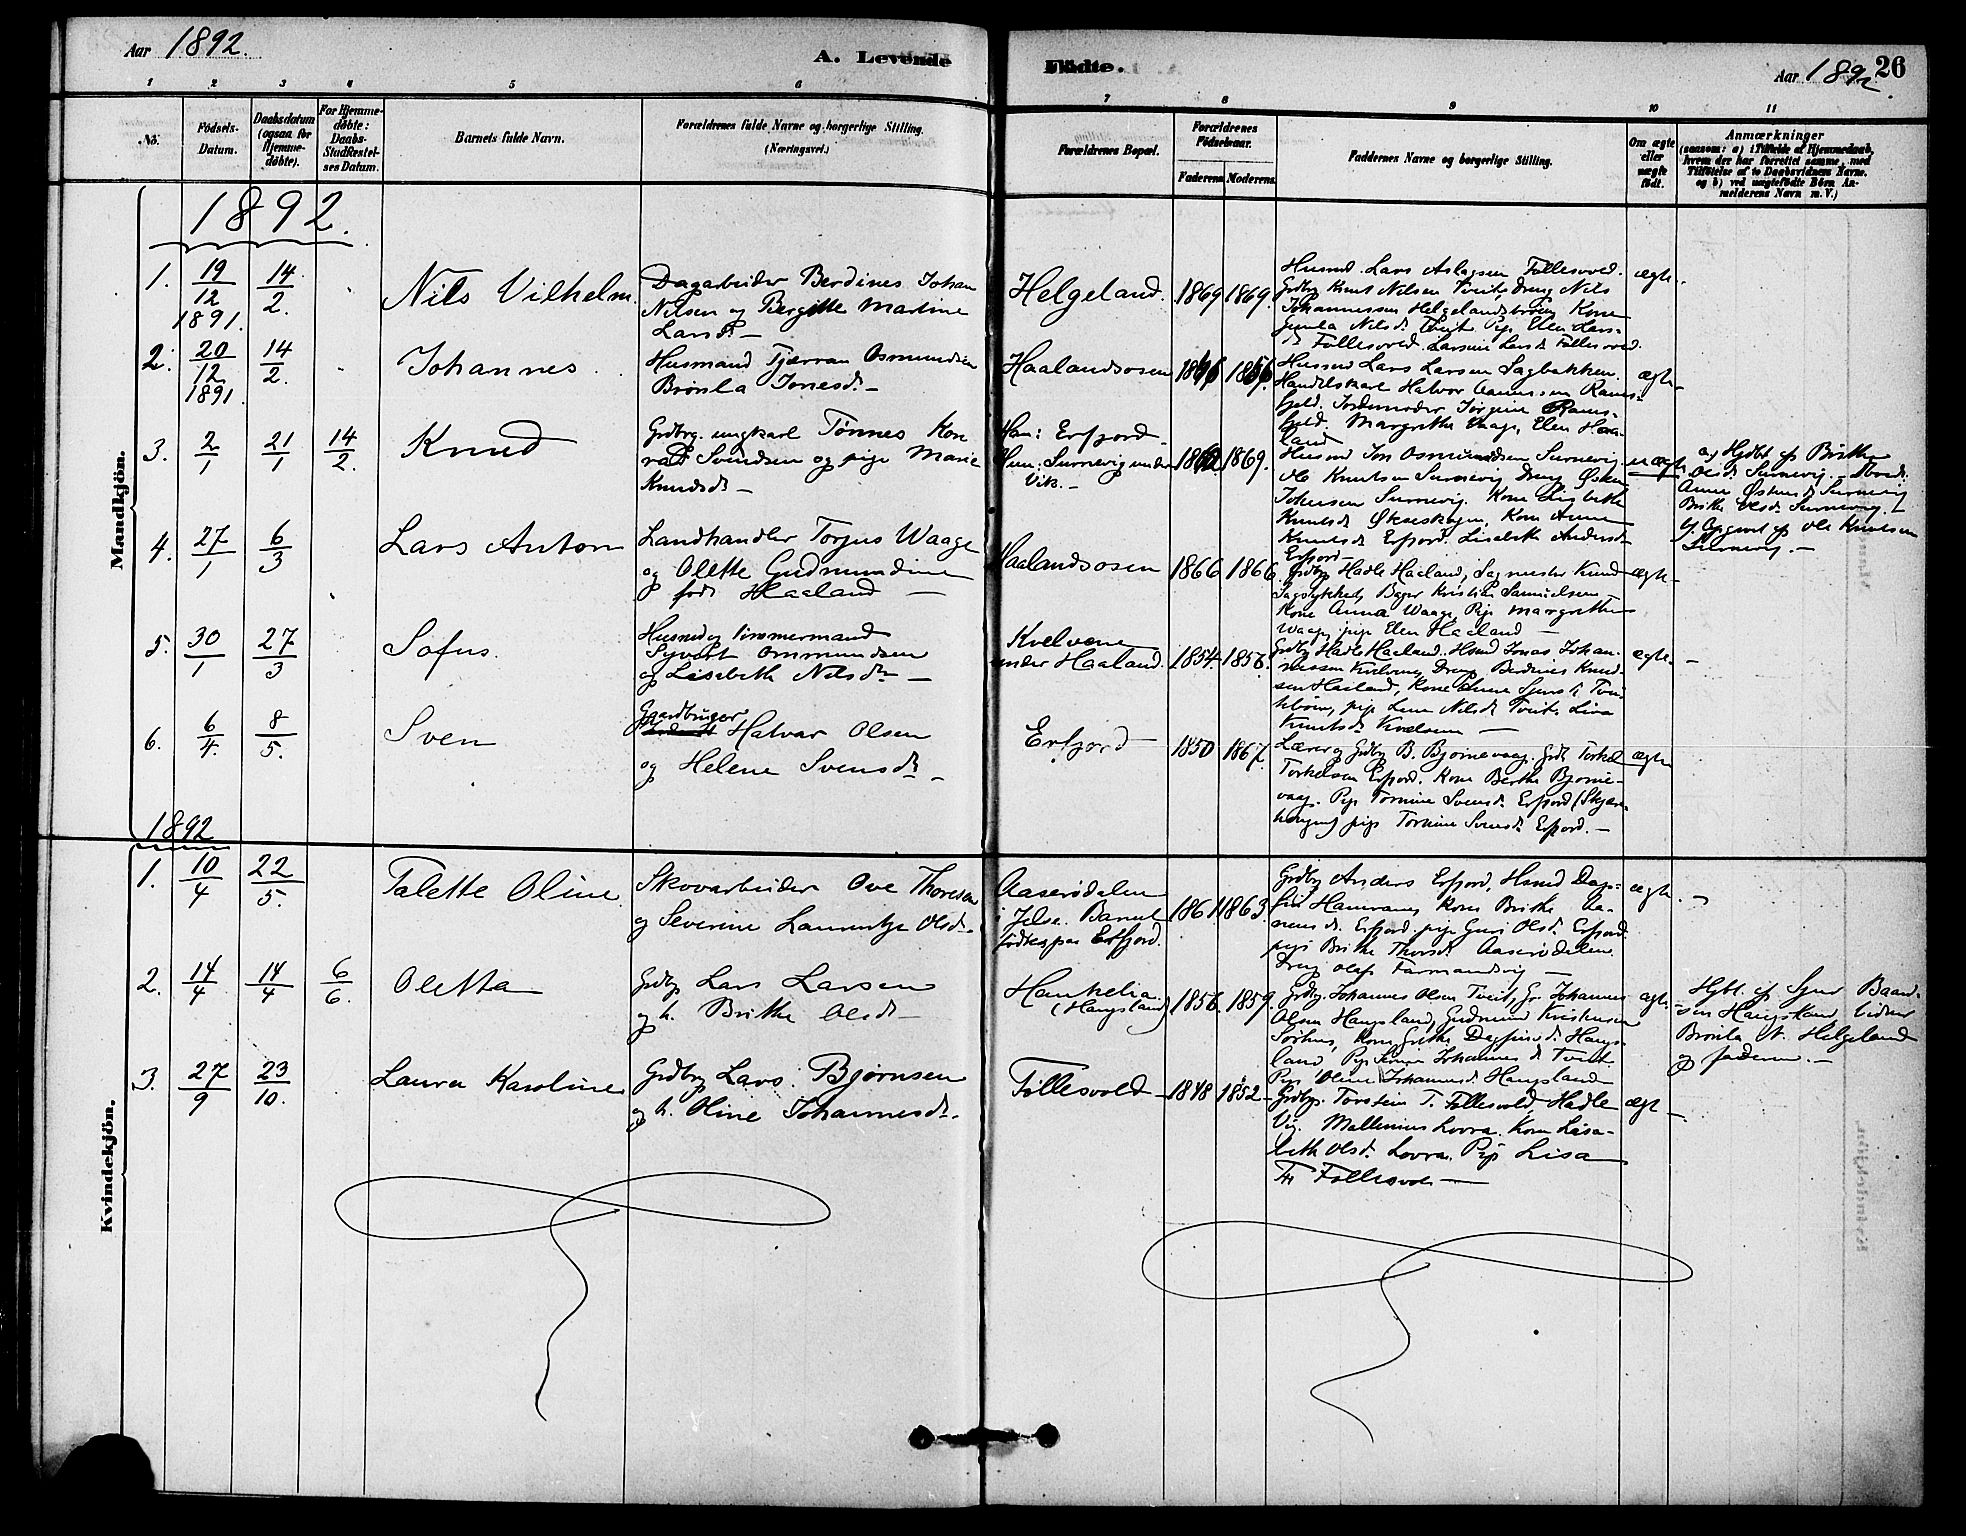 Aar 1892.
A. Levende Födte.
Aar 1892. 26
1 2 3 4 5 6 7 8 9 10 11
No.
Födsels-Datum.
Daabsdatum (ogsaa for Hjemmedöbte).
For Hjemmedöbte: Daabs-Stadfæstelses Datum.
Barnets fulde Navn.
Forældrenes fulde Navne og borgerlige Stilling.
(Næringsvei.)
Forældrenes Bopæl.
Forældrenes Födselsaar.
Faderens. Moderens.
Faddernes Navne og borgerlige Stilling.
Om ægte eller uægte födt.
Anmærkninger
(saasom: a) i Tilfælde af Hjemmedaab,
hvem der har forrettet samme, med
Tilföielse af to Daabsvidners Navne.
og b) ved uægtefödte Börn An-
melderens Navn m. V.)
Mandkjön.
1892.
1. 19/12 1891. 14/2.
Nils Vilhelm.
Dagarbeider Berdines Johan
Nilsen og Bergitte Martine
Larsd. —
Helgeland. 1869 1869.
Husmd. Lars Aslagsen Follesvold.
Grdbg Knut Nilsen Tveit, Dreng Nils
Johannessen Helgelandsbroen Kone
Gunla Nilsd. Tveit Pige Elen Lars-
d. Follesvold. Larsine Larsd. Follesvold.
ægte.
2. 20/12 1891. 14/2.
Johannes.
Husmand Tjærran Osmundsen
Brønla Jonesd. —
Haalandsosen
Husmd Lars Larsen Sagbakken.
Handelskarl Halvor
Jordemoder Jørgine Rams-
fjeld. Margrethe Waage, Elen Haa-
land
ægte
3. 2/1 21/1 14/2.
Knud
Grdbrg. ungkarl Tønnes Kon
rad Svendsen og pige Marie
Knudsd. —
Han: Erfjord —
Hun: Surnevig under
Vik. —
1869.
Husmd Jon Osmundsen Surnevig.
Ole Knutsen Surnevig Dreng Østen
Johnsen Surnevig. Kone Lisbeth
Knutsd. Kone Anne
Knutsd. Erfjord. Lisebeth Andersd.
Erfjord —
uægte
a) Hjdbt af Brithe
Olsd. Surnevig.
Anne Østensd. Surnevig
Brithe Olsd. Surnevig. —
b) Opgivet af Ole Knutsen
Surnevig. —
4. 27/1 6/3
Lars Anton
Landhandler Torjus Waage
og Olette Gudmundine
født Haaland —
Haalandsosen 1866 1866.
Grdbg Hadle Haaland, Sagmester Knud
Bager Kristian Samuelsen —
Kone Anna Waage, Pige Margrethe
Waage, pige Elen Haaland —
ægte
5. 30/1 27/3
Sofus.
Husmd og Tømmermand
Syvert Ommundsen
og Lisebeth Nilsd. —
Kvelvene
under Haaland. 1854. 1856.
Grdbg Hadle Haaland. Hsmd Jonas Johan-
nessen Kvelvene, Dreng Berdines Knud-
sen Haaland, Kone Anne
pige Lene Nilsd. Tveit. Lisa
Knutsd. —
ægte. —
6. 6/4. 8/5.
Sven
Gaardbruger
Halvar Olsen
og Helene Svensd. —
Erfjord — 1850 1867.
Lærer og Grdbg B. Bjørnevaag. Grdb Torkel
Torkelsen Erfjord. Kone Berthe Bjørne-
vaag. Pige Tomine Svensd. Erfjord
pige Tomine Svensd. Erfjord. —
ægte
Kvindekjön.
1892
1. 10/4 22/5.
Talette Oline
Skovarbeider Ove Thoresen
og Severine Laurentze Olsd. —
Aaserødalen
i Jelse. Barnet
født paa Erfjord.
1861 1863.
Grdbg Anders Erfjord, Hsmd Dag-
fin Hamrane, Kone Brithe Aa-
nensd. Erfjord. pige Guri Olsd. Erfjord.
pige Brithe Thorsd. Aaserødalen.
Dreng Olaf —
ægte. —
2. 14/4 14/4 6/6
Oletta
Grdbg Lars Larsen
og h. Brithe Olsd. —
Hankelia.
(Haugsland) 1856. 1859.
Grdbg. Johannes Olsen Tveit, Gr. Johannes
Olsen Haugsland, Gudmund Kristensen
Sørhus, Kone Grethe Dagfinsd. Haugs-
land, Pige Johannesd. Tveit
Pige Oline Johannesd. Haugsland
ægte.
Hjbt. af Baard-
sen Haugsland, Vidner
Brønla N. Helgeland
og faderen. —
3. 27/9 23/10.
Laura Karoline
Grdbrg Lars Bjørnsen
og h. Oline Johannesd. —
Follesvold — 1848 1852 —
Grdbg. Torstein T. Follesvold, Hadle
Vig. Mallenius Lovra. Kone Lisa-
beth Olsd. Lovra. Pige Lisa
Th Follesvold —
ægte —